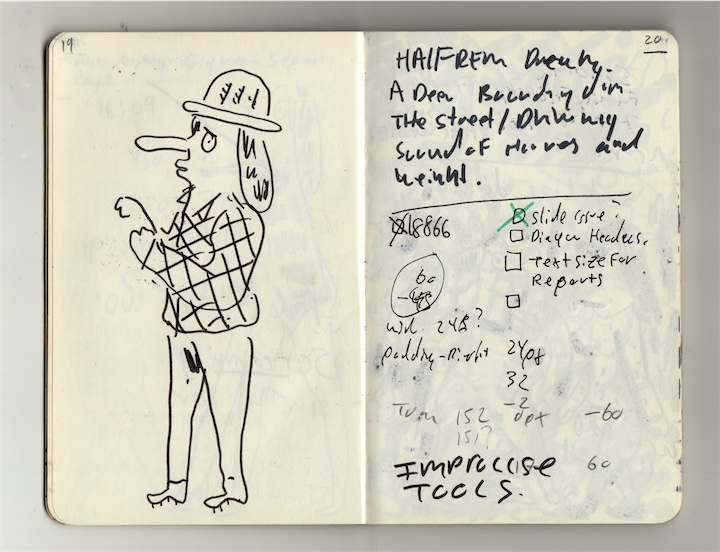 19
20
HALFREM Dreamy.
A Deer Bounding down
The street / Drumming
Sound of Hooves and
weight.
18866
slide issue?
Headers.
Text size For
Reports
60
-48
248?
padding-Right 24px
32
-2
Turn 152 opt -60
151?
60
IMPROVISE
TOOLS.